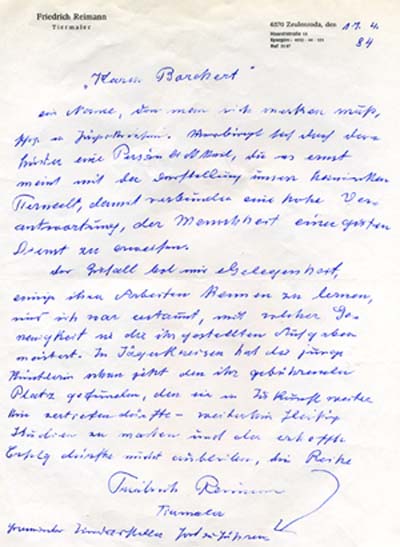 Friedrich Reimann
Tiermaler
6570 Zeulenroda, den 17. 4.
84
Ruf 3147
„Karin Borchert"
ein Name, den man sich merken muß,
in Jägerkreisen. Verbirgt sich doch da-
hinter eine Persönlichkeit, die es ernst
meint mit der Darstellung unserer heimischen
Tierwelt, damit verbunden eine hohe Ver-
antwortung, der Menschheit einen guten
Dienst zu erweisen.
Der Zufall bot mir Gelegenheit,
einige ihrer Arbeiten kennen zu lernen,
und ich war erstaunt, mit welcher Ge-
nauigkeit sie die ihr gestellten Aufgaben
meistert. In Jägerkreisen hat die junge
Künstlerin schon jetzt den ihr gebührenden
Platz gefunden, den sie in Zukunft weiter
hin vertiefen dürfte – weiterhin fleißig
Studien zu machen und der erhoffte
Erfolg dürfte nicht ausbleiben, die Reihe
Friedrich Reimann
Tiermaler
fortzuführen